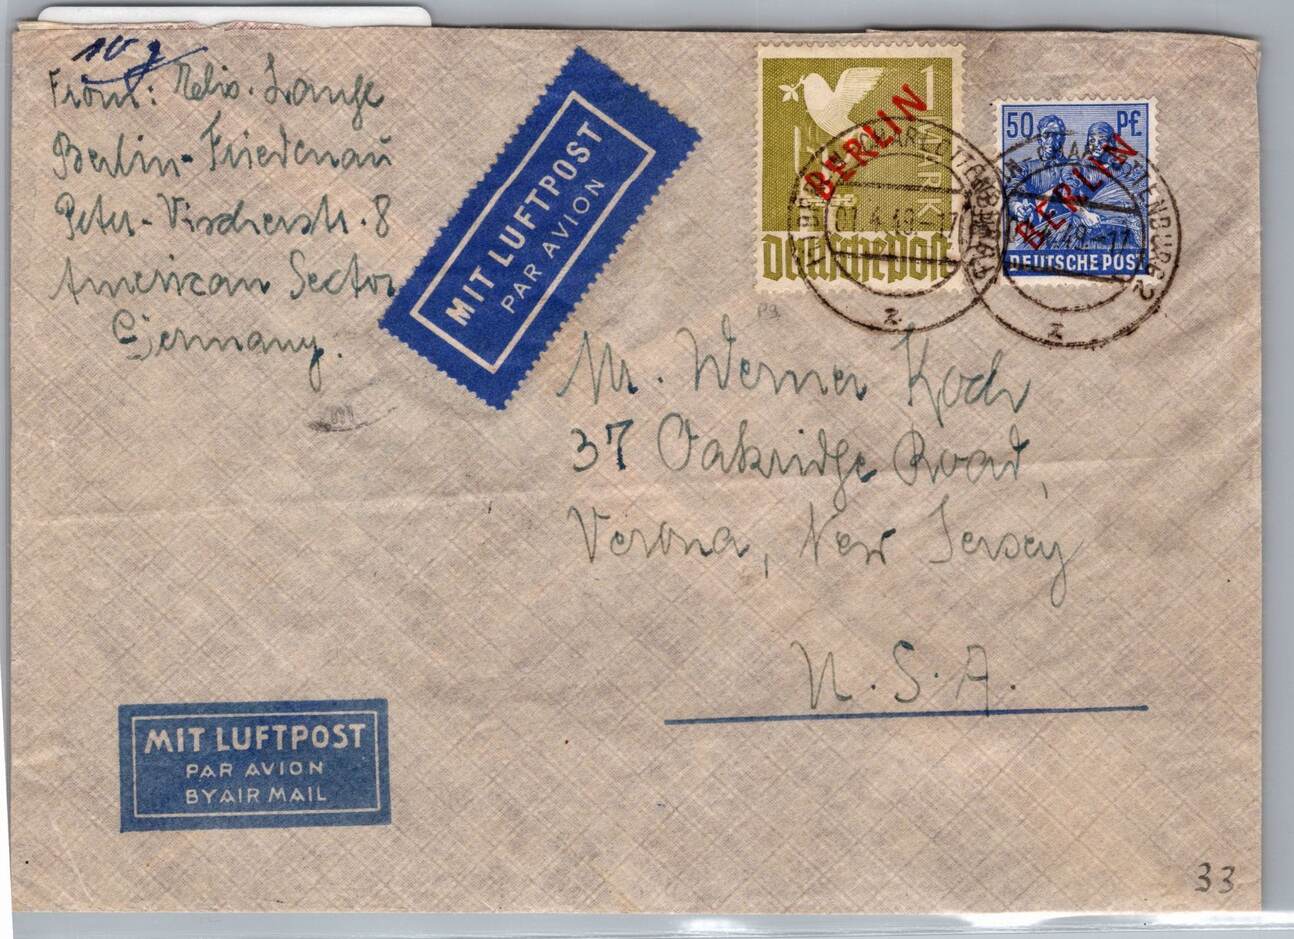 10 g
From: Felix. Lange
Berlin-Friedenau
Peter-Vischerstr. 8
American Sector
Germany.
MIT LUFTPOST
PAR AVION
1 MARK
BERLIN
Deutsche Post
50 PF
BERLIN
DEUTSCHE POST
CHARLOTTENBURG
z
CHARLOTTENBURG 2
z
Mr. Werner Koch
37 Oakridge Road,
Verona, New Jersey
U.S.A.
MIT LUFTPOST
PAR AVION
BY AIR MAIL
33